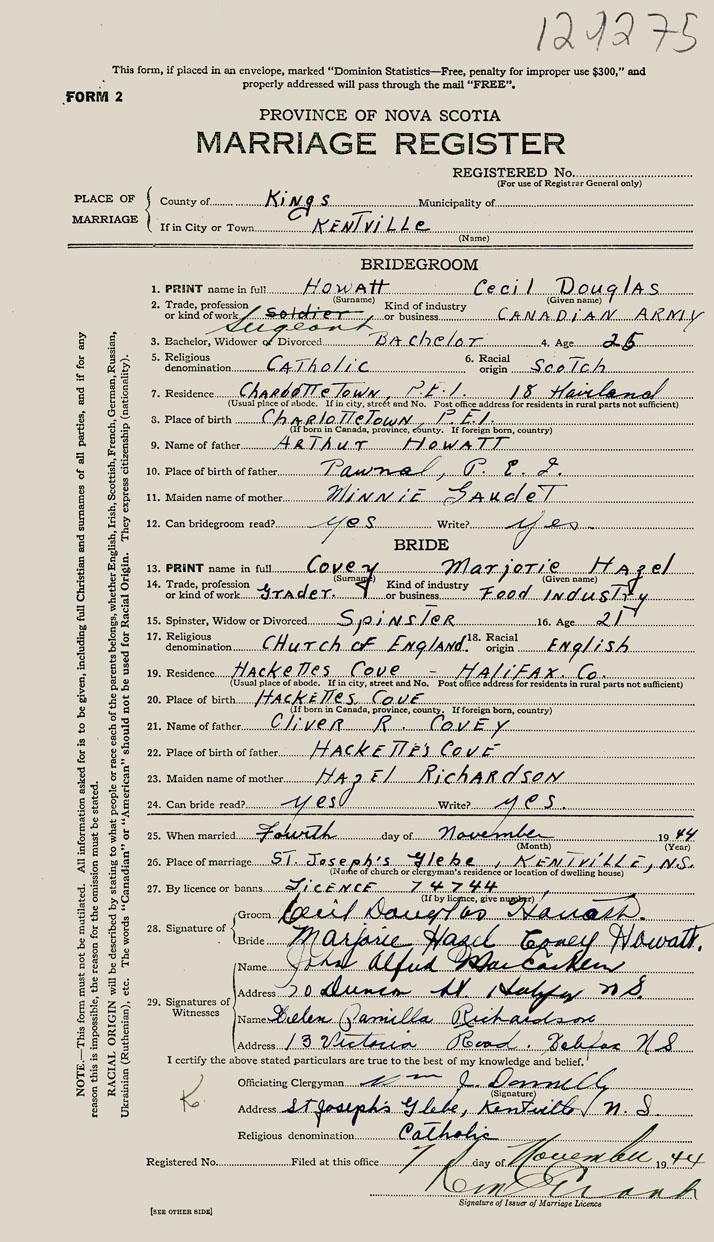 121275
This form, if placed in an envelope, marked "Dominion Statistics—Free, penalty for improper use $300," and
properly addressed will pass through the mail "FREE".
FORM 2
PROVINCE OF NOVA SCOTIA
MARRIAGE REGISTER
REGISTERED No.
(For use of Registrar General only)
PLACE OF MARRIAGE
County of Kings Municipality of
If in City or Town KENTVILLE
(Name)
BRIDEGROOM
1. PRINT name in full HOWATT CECIL DOUGLAS
(Surname) (Given name)
2. Trade, profession or kind of work soldier Sergeant Kind of industry or business CANADIAN ARMY
3. Bachelor, Widower or Divorced BACHELOR 4. Age 25
5. Religious denomination CATHOLIC 6. Racial origin SCOTCH
7. Residence CHARLOTTETOWN, P.E.I. 18
(Usual place of abode. If in city, street and No. Post office address for residents in rural parts not sufficient)
8. Place of birth CHARLOTTETOWN, P.E.I.
(If born in Canada, province, county. If foreign born, country)
9. Name of father ARTHUR HOWATT
10. Place of birth of father Pownal, P.E.I.
11. Maiden name of mother MINNIE GAUDET
12. Can bridegroom read? yes Write? yes.
BRIDE
13. PRINT name in full Covey Marjorie Hazel
(Surname) (Given name)
14. Trade, profession or kind of work Grader. Kind of industry or business Food INDUSTry
15. Spinster, Widow or Divorced SPINSTER 16. Age 21
17. Religious denomination CHURCH OF ENGLAND. 18. Racial origin ENGLISH
19. Residence HACKETTES COVE - HALIFAX. Co.
(Usual place of abode. If in city, street and No. Post office address for residents in rural parts not sufficient)
20. Place of birth HACKETTES COVE
(If born in Canada, province, county. If foreign born, country)
21. Name of father OLIVER R. COVEY
22. Place of birth of father HACKETTE'S COVE
23. Maiden name of mother HAZEL RICHARDSON
24. Can bride read? yes Write? yes.
25. When married Fourth day of November 1944
(Month) (Year)
26. Place of marriage ST. Joseph's Glebe, KENTVILLE, N.S.
(Name of church or clergyman's residence or location of dwelling house)
27. By licence or banns LICENCE 74744
(If by licence, give number)
28. Signature of
Groom Cecil Douglas Howatt.
Bride Marjorie Hazel Covey Howatt.
29. Signatures of Witnesses
Name John Alfred
Address 70 St Halifax N.S.
Name Helen Ramilla Richardson
Address 13 Victoria Road. Halifax N S
I certify the above stated particulars are true to the best of my knowledge and belief.
Officiating Clergyman Wm J. Donnelly
(Signature)
Address St Joseph's Glebe, Kentville, N.S.
Religious denomination Catholic
K
Registered No. Filed at this office 7 day of November 1944
Signature of Issuer of Marriage Licence
[SEE OTHER SIDE]
NOTE.—This form must not be mutilated. All information asked for is to be given, including full Christian and surnames of all parties, and if for any
reason this is impossible, the reason for the omission must be stated.
RACIAL ORIGIN will be described by stating to what people or race each of the parents belongs, whether English, Irish, Scottish, French, German, Russian,
Ukrainian (Ruthenian), etc. The words "Canadian" or "American" should not be used for Racial Origin. They express citizenship (nationality).